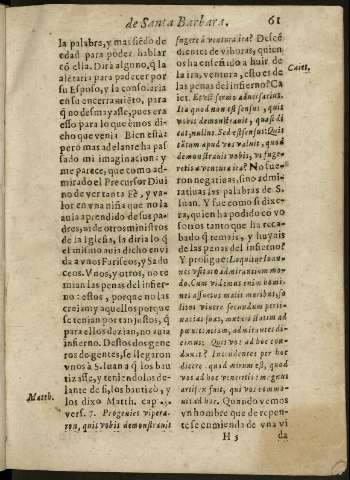 de Santa Barbara. 61
la palabra, y mas siẽdo de
edad para poder hablar
cõ ella. Dirà alguno, q̃ la
alẽtaria para padecer por
su Esposo, y la consolaria
en su encerramiẽto, para
q̃ no desmayasse, pues era
esso para lo que hemos dicho
que venia Bien està:
pero mas adelante ha passado
mi imaginacion: y
me parece, que como admirado
el Precursor Divino
de ver tanta Fè, y valor
en vna niña que no la
auia aprendido de sus padres,
ni de otros ministros
de la Iglesia, la diria lo q̃
el mismo auia dicho en vida
a vnos Fariseos, y Saduceos.
Vnos, y otros, no temian
las penas del infierno:
estos, porque no las
creian: y aquellos porque
se tenian por tan justos, q̃
para ellos dezian, no auia
infierno. Destos dos generos
de gentes, se llegaron
vnos à S. Iuan a q̃ los bautizasse,
y teniendolos delante
de si, los bautizò, y
los dixo Matth. cap.
vers. 7. Progenies viperaron,
quis vobis demonstrauit
Matth.
fugere à ventura ira? Descẽdientes
de viboras, quien
os ha enseñado a huir de
la ira, ventura, esto es de
las penas del infierno? Caiet.
Caiet.
quod non est sensus, quis
vobis demonstrauit, quasi dicat,
nullus. Sed est sensus: Quis
tãtum apud vos valuit, quod
demonstrauit vobis, vt fugeretis
a ventura ira? No fueron
negatiuas, sino admiratiuas
las palabras de S.
Iuan. Y fue como si dixera,
quien ha podido cõ vosotros
tanto que ha recabado
q̃ temais, y huyais
de las penas del infierno?
Y prosigue:
Quis vos ad hoc conduxit?
quod mirum est, quod
vos ad hoc veneritis: magnus
artifex fuit, qui vos commouit
ad hoc. Quando vemos
vn hombre que de repente
se enmienda de vna vi
H 5 da